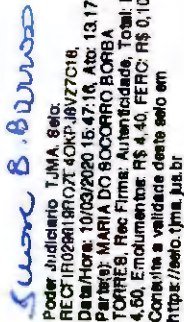 B. Barros
Poder Judiciário TJMA. Selo:
Data/Hora: 10/03/2020 15:47:16, Ato: 13.17
Parte(s): MARIA DO SOCORRO BORBA
TORRES, Rec Firma: Autenticidade, Total:
4,60, Emolumentos: R$ 4,40, FERC: R$ 0,10
Consulte a validade deste selo em
https://selo.tjma.jus.br